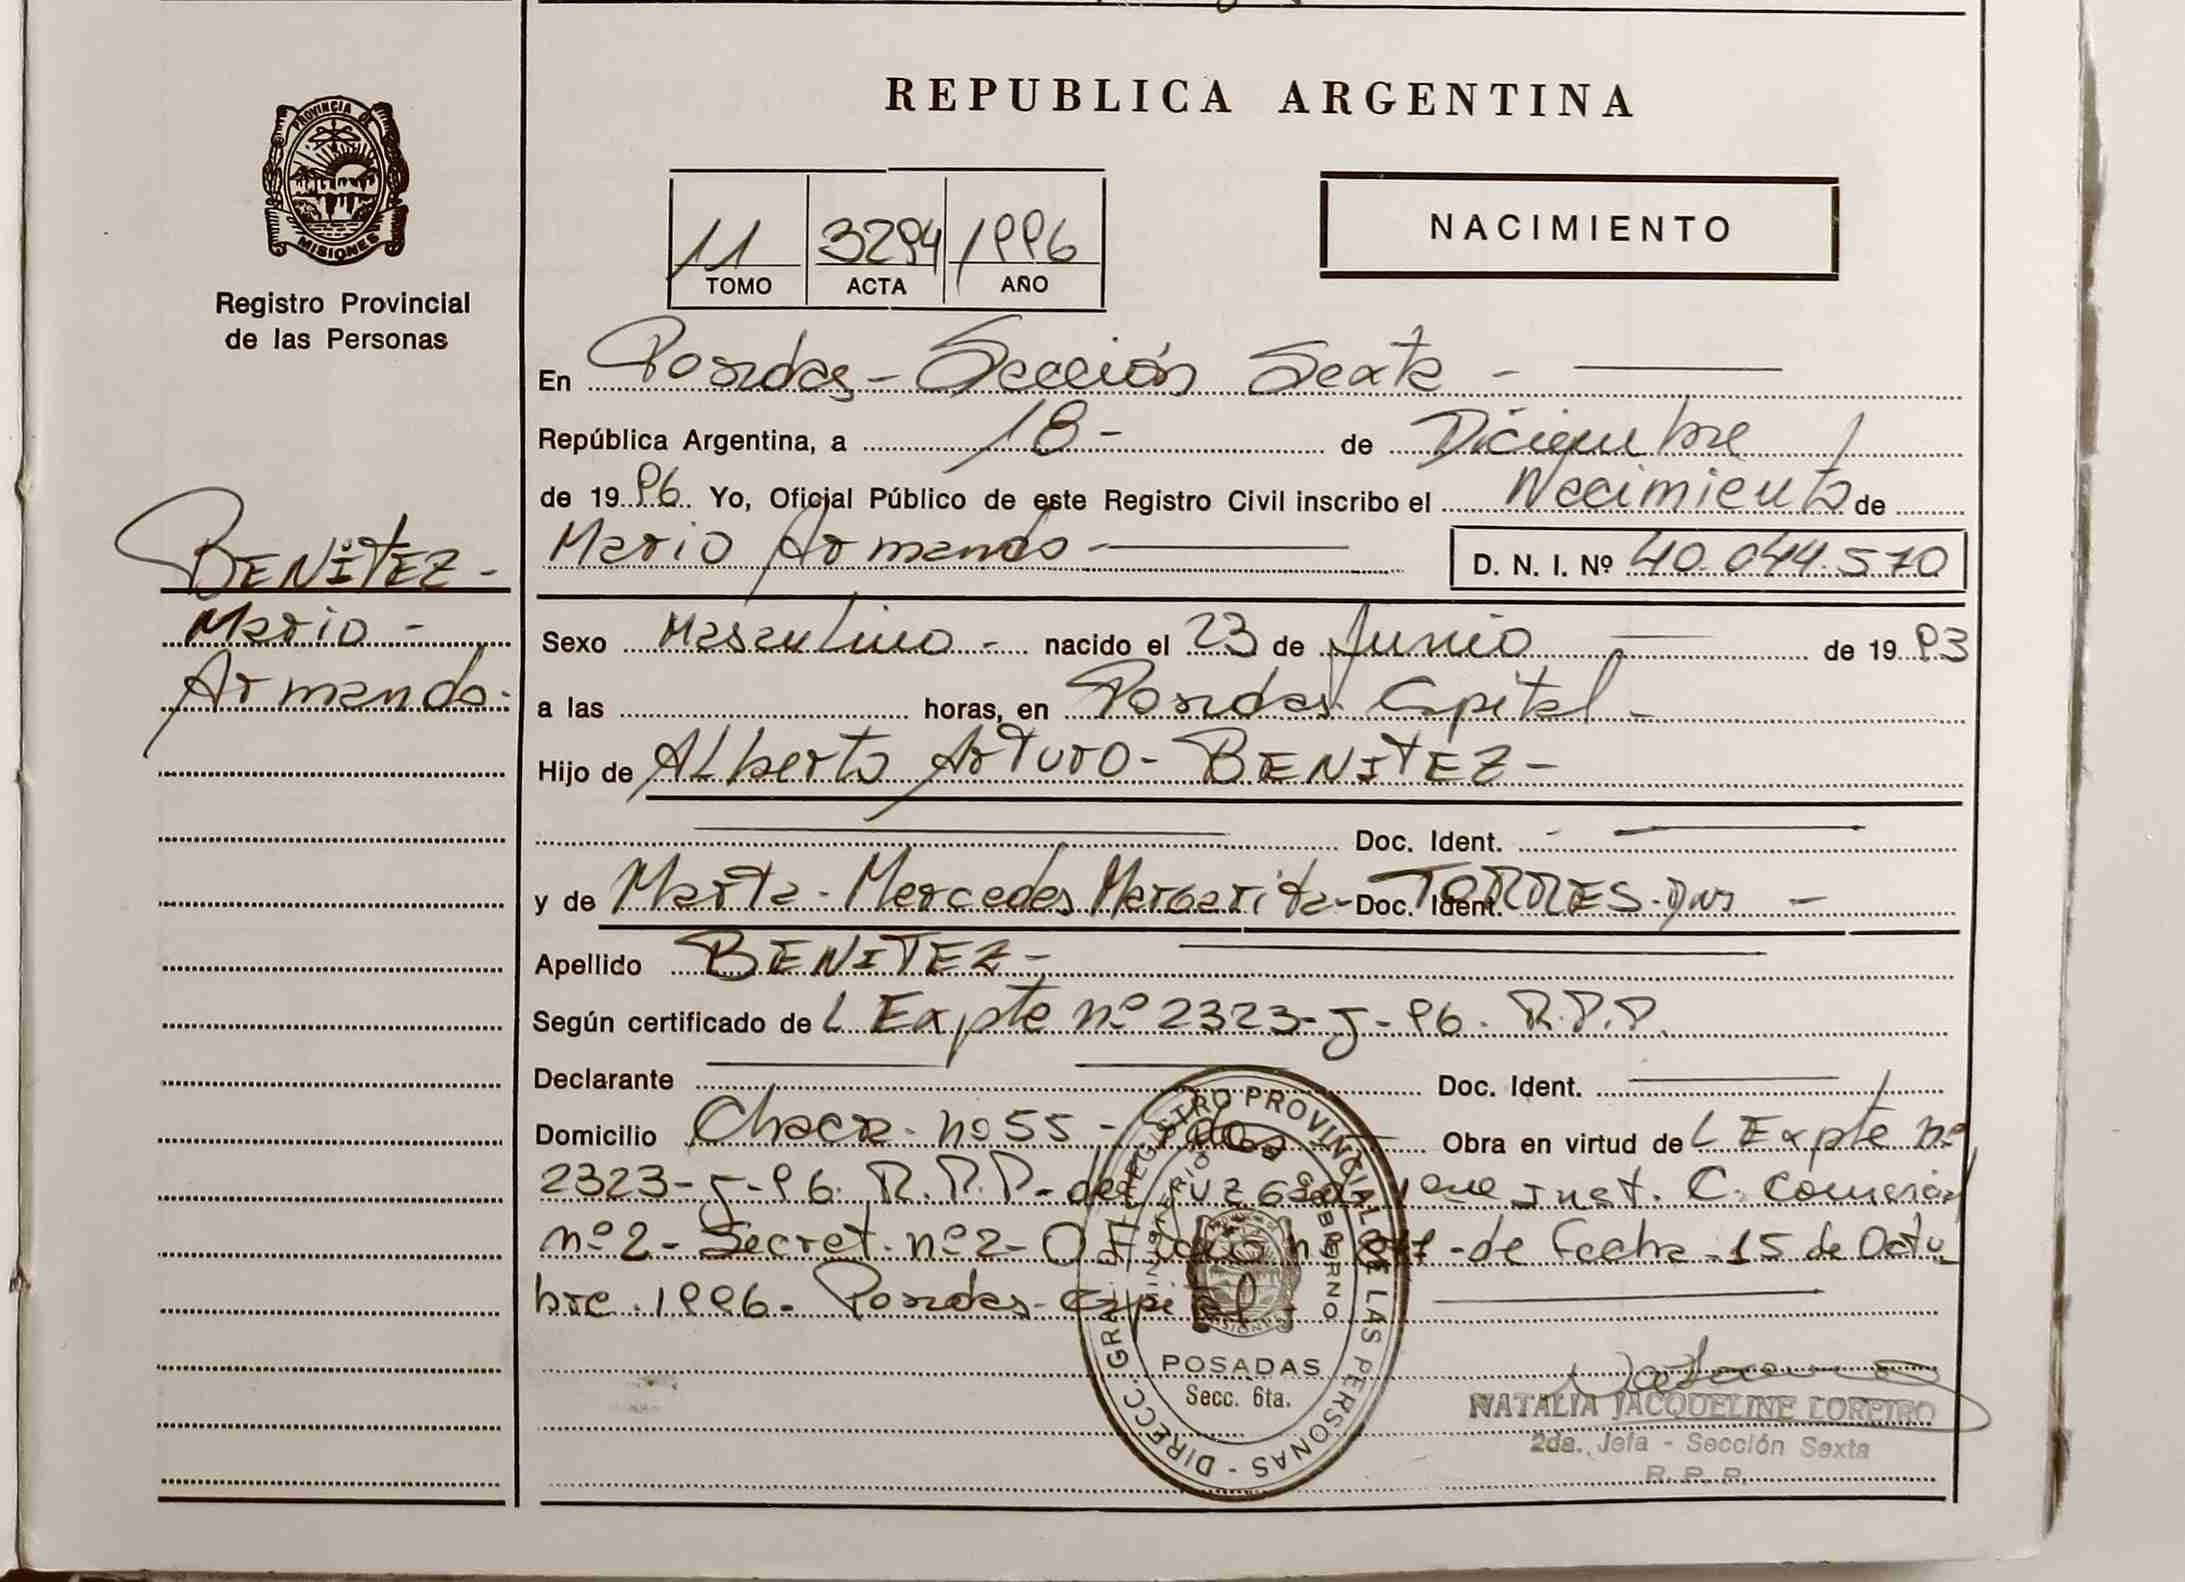 REPUBLICA ARGENTINA
PROVINCIA DE
MISIONES
Registro Provincial
de las Personas
11 3294 1996
TOMO ACTA AÑO
NACIMIENTO
En Posadas - Sección Sexta -
República Argentina, a 18 - de Diciembre
de 1996 Yo, Oficial Público de este Registro Civil inscribo el Nacimiento de
Mario Armando - D. N. I. Nº 40.044.570
BENÍTEZ -
Mario -
Armando.
Sexo Masculino - nacido el 23 de Junio de 1993
a las horas, en Posadas Capital -
Hijo de Alberto Arturo - BENITEZ -
Doc. Ident.
y de Marta - Mercedes Margarita - Doc. Ident. TORRES -
Apellido BENITEZ -
Según certificado de L Expte nº 2323-J-96. R.P.P.
Declarante Doc. Ident.
Domicilio Chacra - nº 55 - Obra en virtud de L Expte nº
2323-J-96. R.P.P. - del Juzgado Inst. C. Comercial
nº 2 - Secret. nº 2 - Oficio - de Fecha - 15 de Octu
bre . 1996 - Posadas - Capital -
DIRECC. GRAL. DEL REGISTRO PROVINCIAL DE LAS PERSONAS -
MINISTERIO DE GOBIERNO
MISIONES
POSADAS
Secc. 6ta.
NATALIA JACQUELINE LOREIRO
2da. Jefa - Sección Sexta
R. P. P.